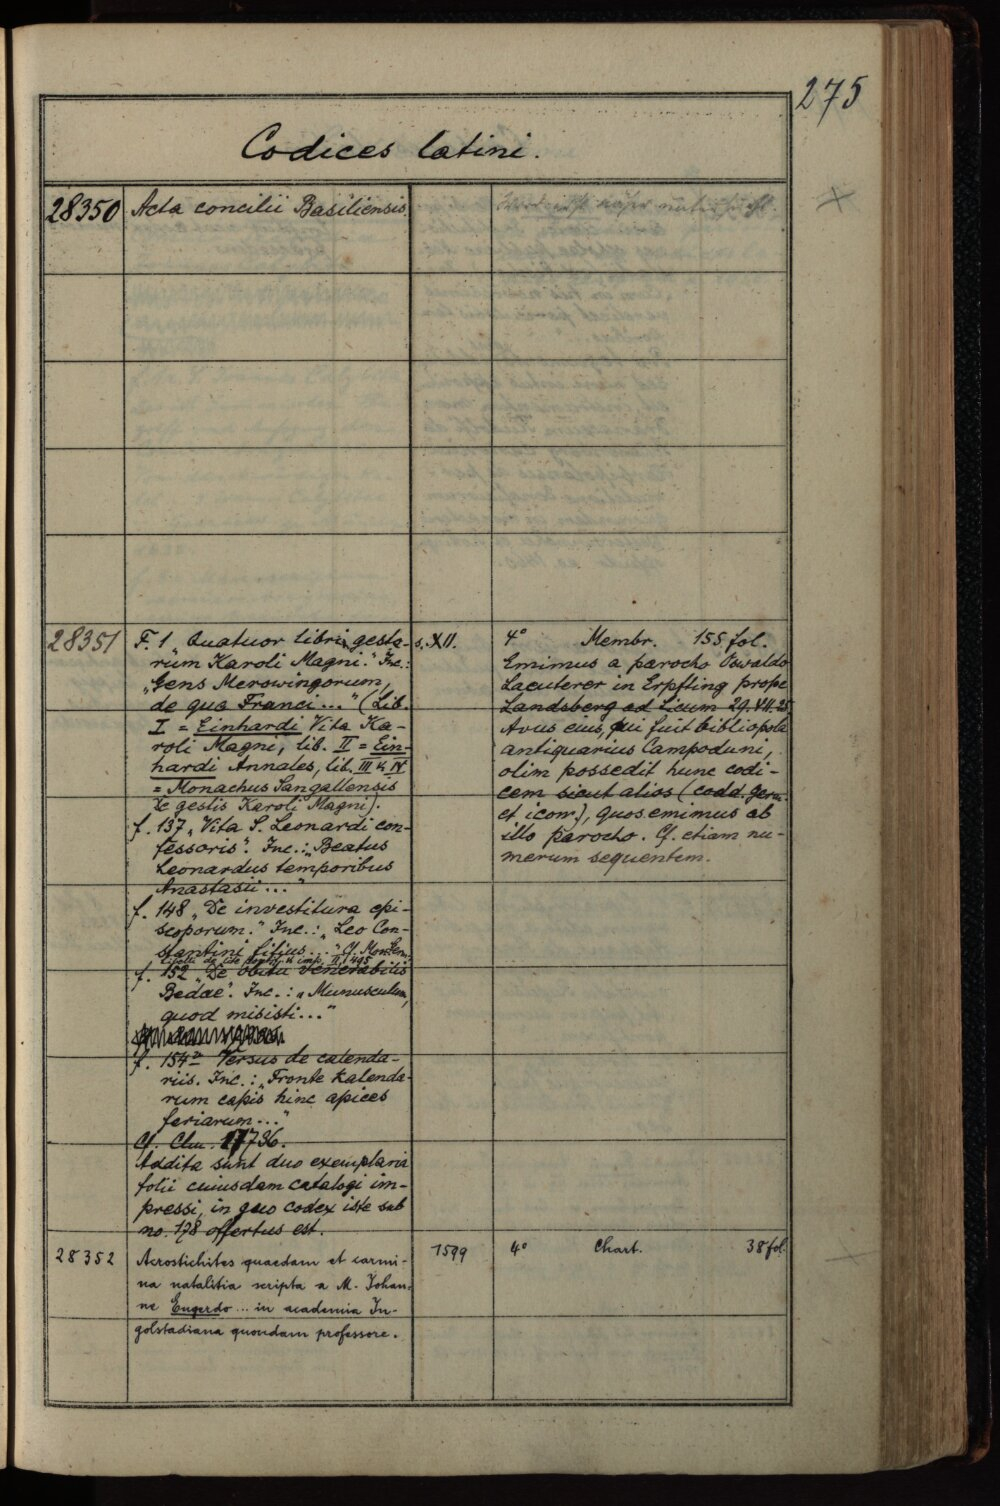 275
Codices latini.
28350 Acta concilii Basiliensis.
28351 F. 1 „Quatuor libri gesta- s. XII. 4° Membr. 155 fol.
rum Karoli Magni." Inc.:
„Gens Merowingorum,
de qua Franci ..." (Lib.
I = Einhardi Vita Ka-
roli Magni, lib. II = Ein-
hardi Annales, lib. III & IV
= Monachus Sangallensis
De gestis Karoli Magni).
f. 137 „Vita S. Leonardi con-
fessoris". Inc.: „Beatus
Leonardus temporibus
Anastasii ..."
f. 148 „De investitura epi-
scoporum." Inc.: „Leo Con-
stantini filius ..." Cf. Mon. Germ.
Libelli de lite pontif. & imp. II, 495
f. 152 „De obitu venerabilis
Bedae". Inc.: „Munusculum,
quod misisti ..."
f. 154v Versus de calenda-
riis. Inc.: „Fronte kalenda-
rum capis hinc apices
feriarum ..."
Cf. Clm. 17736.
Addita sunt duo exemplaria
folii cuiusdam catalogi im-
pressi, in quo codex iste sub
no. 178 offertus est.
Emimus a parocho Oswaldo
Lacuterer in Erpfting prope
Landsberg ad Licum 29.VII.25
Avus eius, qui fuit bibliopola
antiquarius Campoduni,
olim possedit hunc codi-
cem sicut alios (codd. germ.
et icon.), quos emimus ab
illo parocho. Cf. etiam nu-
merum sequentem.
28352 Acrostichites quaedam et carmi- 1599 4° Chart. 38 fol.
na natalitia scripta a M. Johan-
ne Engerdo ... in academia In-
golstadiana quondam professore.